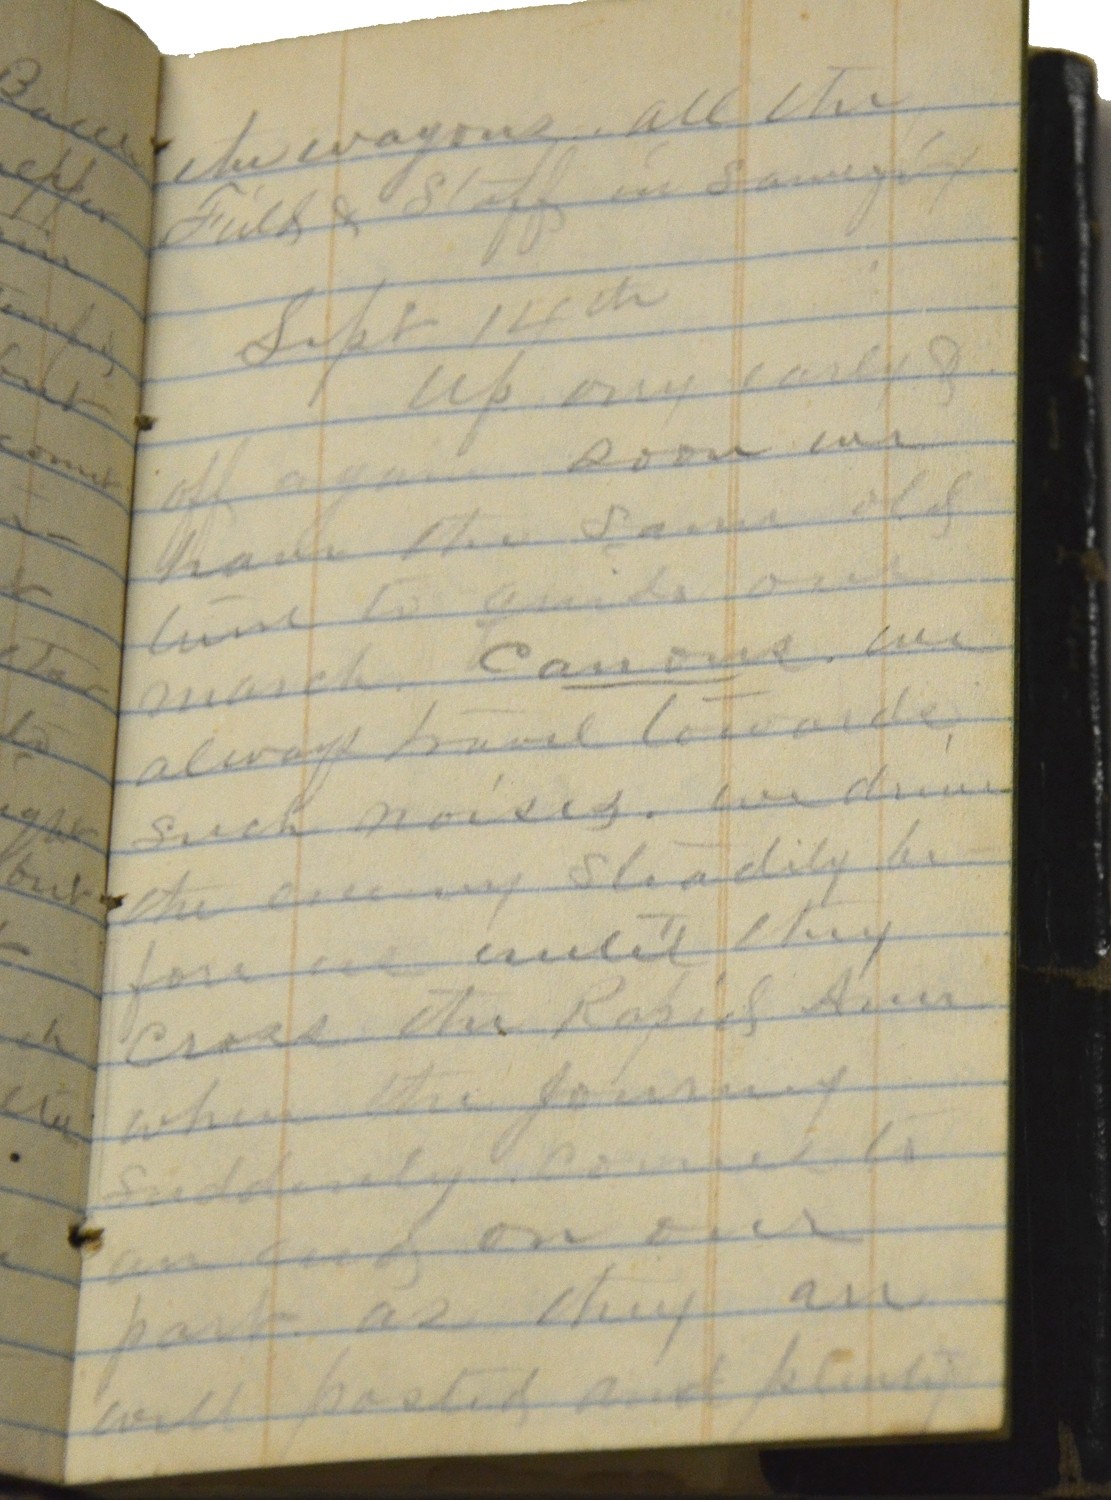 the wagons. all the
Field & Staff in same fix
Sept 14th
Up very early &
off again soon we
have the same old
tune to guide our
march. Canons. we
always travel towards
such noises. we drive
the enemy steadily be-
fore us until they
cross the Rapid Ann
when the journey
suddenly comes to
an end on our
part as they are
well posted and plenty